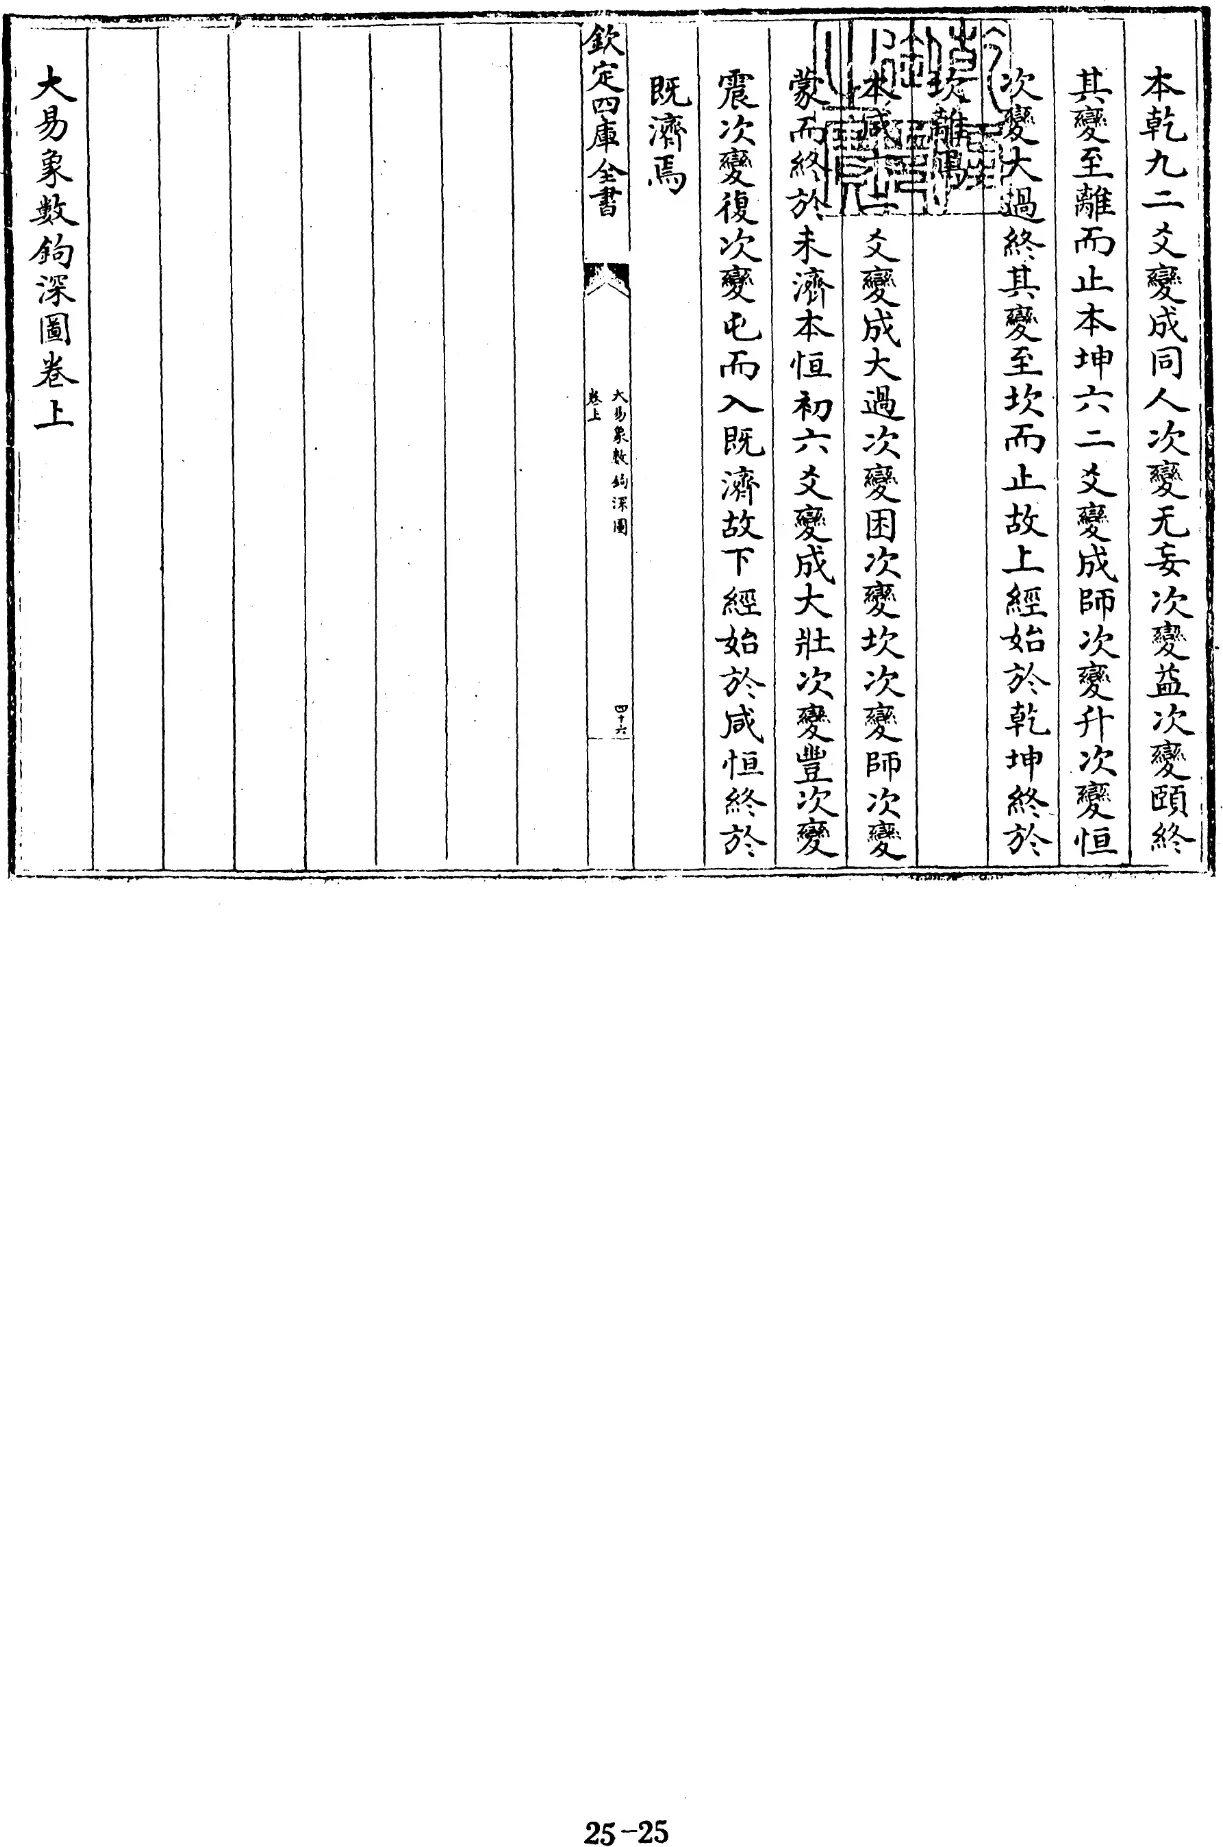 本乾九二爻變成同人次變无妄次變益次變頤終
其變至離而止本坤六二爻變成師次變升次變恒
次變大過終其變至坎而止故上經始於乾坤終於
坎離焉
本咸六二爻變成大過次變困次變坎次變師次變
蒙而終於未濟本恒初六爻變成大壯次變豐次變
震次變復次變屯而入既濟故下經始於咸恒終於
既濟焉
欽定四庫全書
大易象數鈎深圖
卷上
四十六
大易象數鈎深圖卷上
25-25